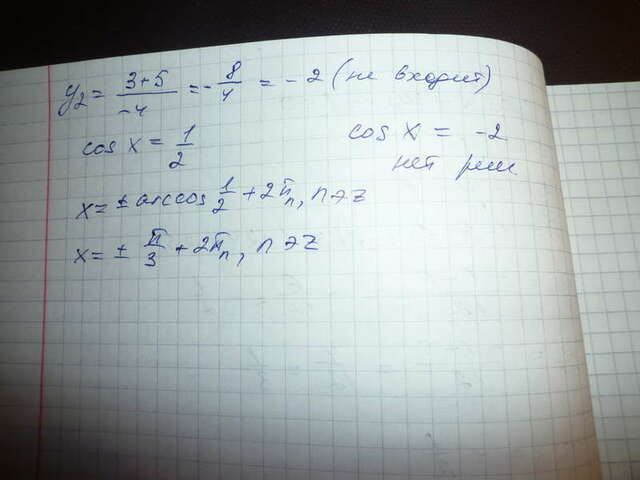 y₂ = (3+5)/(-4) = -8/4 = -2 (не входит)
cos x = 1/2
cos x = -2
нет реш.
x = ± arccos 1/2 + 2πn, n э z
x = ± π/3 + 2πn, n э z